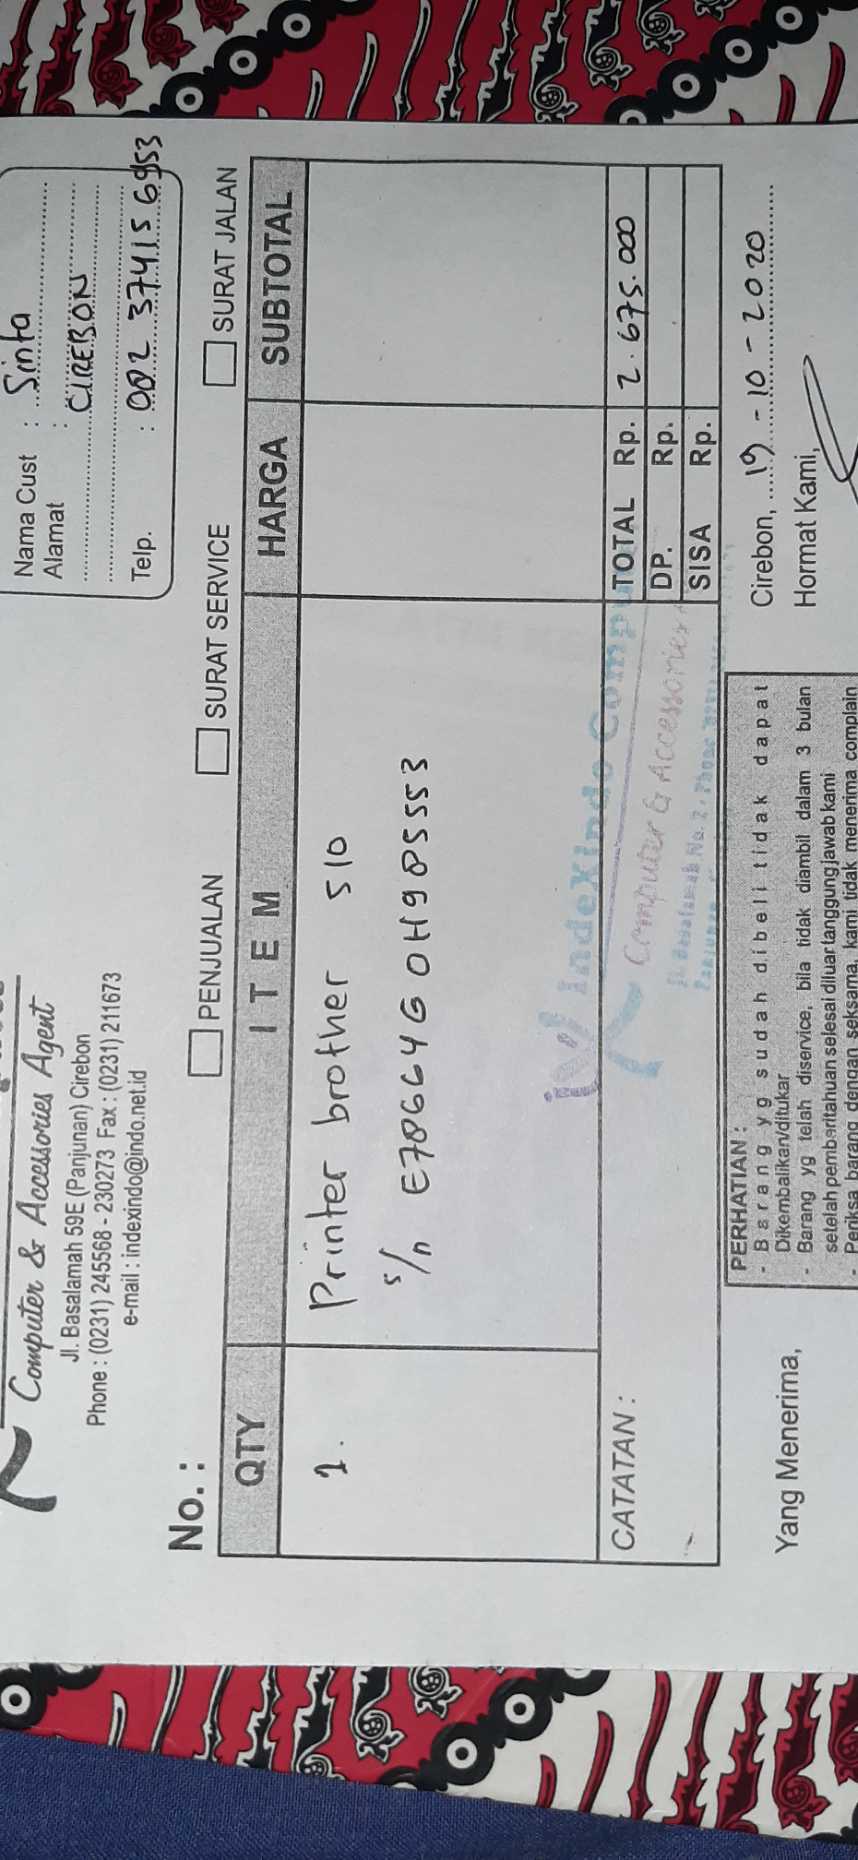 Computer & Accessories Agent
Jl. Basalamah 59E (Panjunan) Cirebon
Phone : (0231) 245568 - 230273 Fax : (0231) 211673
e-mail : indexindo@indo.net.id
Nama Cust : Sinta
Alamat : CIREBON
Telp. : 082 37415 6953
No. :
PENJUALAN
SURAT SERVICE
SURAT JALAN
QTY ITEM HARGA SUBTOTAL
1. Printer brother 510
s/n E78664G0H985553
IndeXindo Computer
Computer & Accessories
CATATAN :
TOTAL Rp. 2.675.000
DP. Rp.
SISA Rp.
PERHATIAN :
- Barang yg sudah dibeli tidak dapat
Dikembalikan/ditukar
- Barang yg telah diservice, bila tidak diambil dalam 3 bulan
setelah pemberitahuan selesai diluar tanggung jawab kami
- Periksa barang dengan seksama, kami tidak menerima complain
Cirebon, 19-10-2020
Yang Menerima,
Hormat Kami,